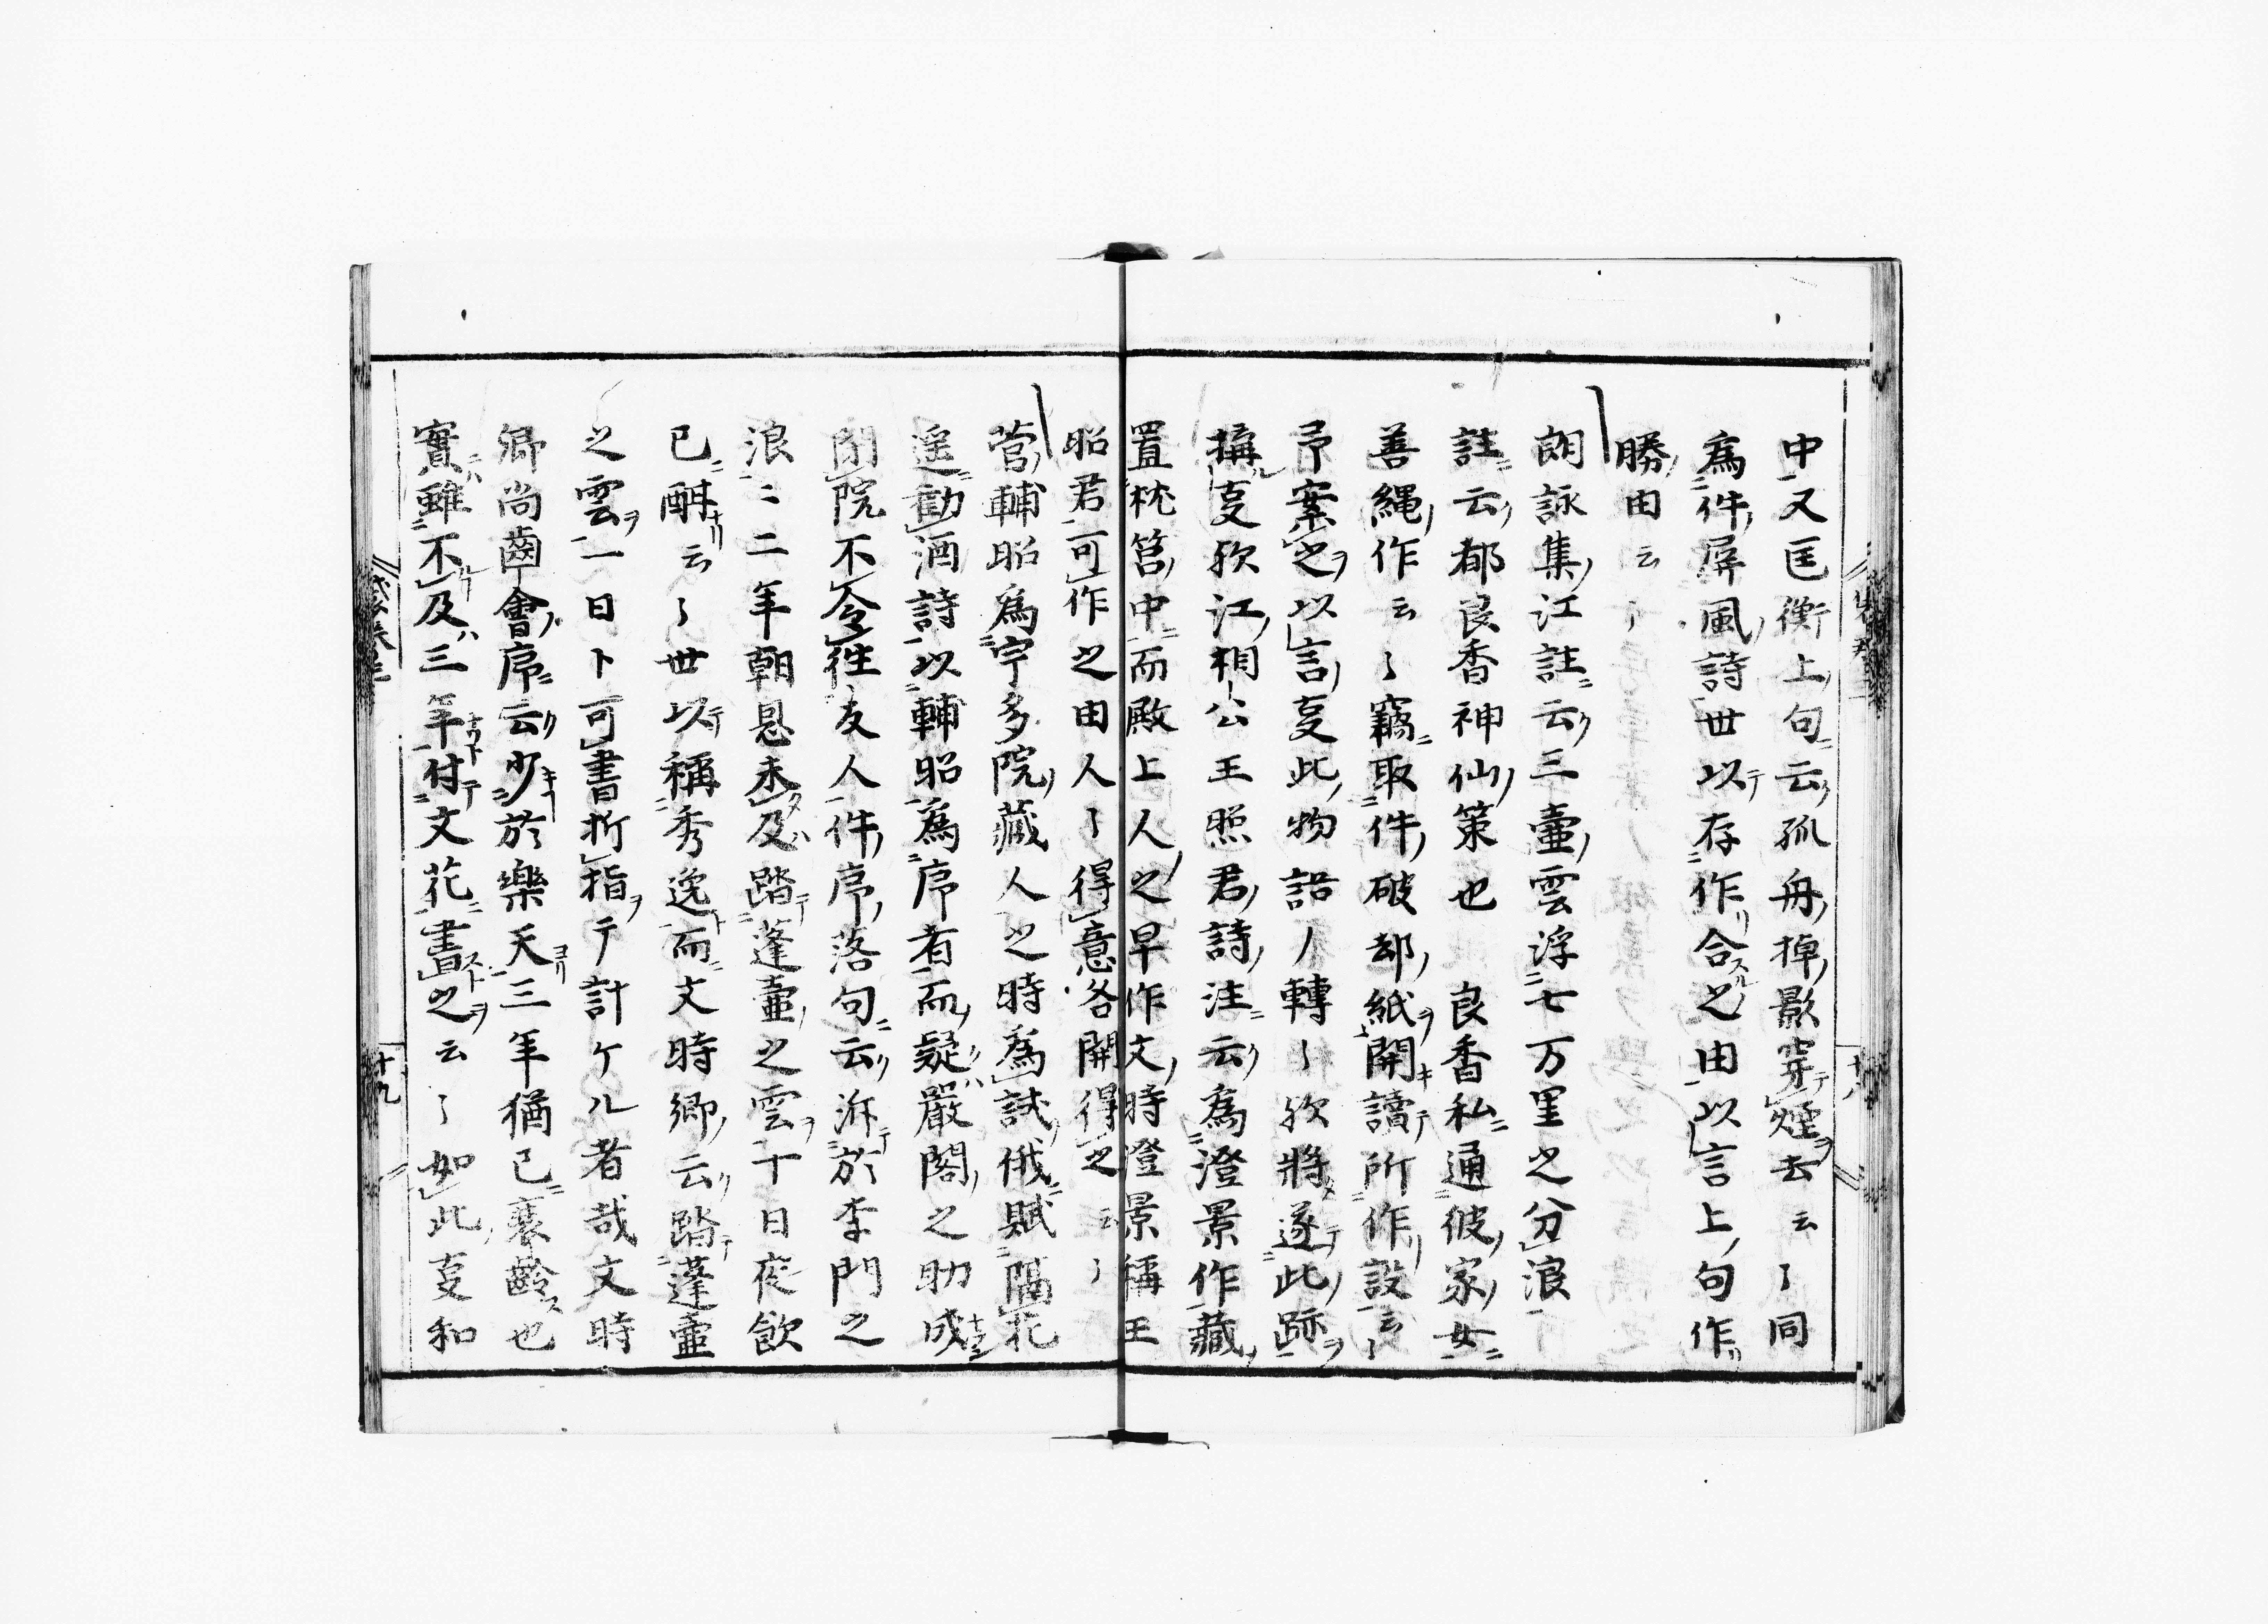 中又匡衡上句云孤舟掉影穿煙去云々同
為件屏風詩世以存作合之由以言上句作
勝由云々
朗詠集江註云三壷雲浮七万里之分浪
註云都良香神仙策也　良香私通彼家女
善縄作云々竊取件破却紙開讀所作設云々
予案之以言叓此物語ノ轉々欤將遂此跡ヲ
搆叓欤江相公王照君詩注云為澄景作藏
置枕筥中而殿上人之早作文時澄景稱王
昭君可作之由人々得意各開得之云々
菅輔昭為宇多院藏人之時為試俄賦隔花
遥勸酒詩以輔昭為序者而疑嚴閤之助成
閇院不令往友人件序落句云泝於李門之
浪々二年朝恩未及踏蓬壷之雲十日夜飲
已酣云々世以稱秀逸而文時卿云踏蓬壷
之雲一日ト可書折指テ計ケル者哉文時
卿尚齒會序云少於樂天三年猶已衰齡也
實雖不及三年付文花書之云々如此叓和
十九